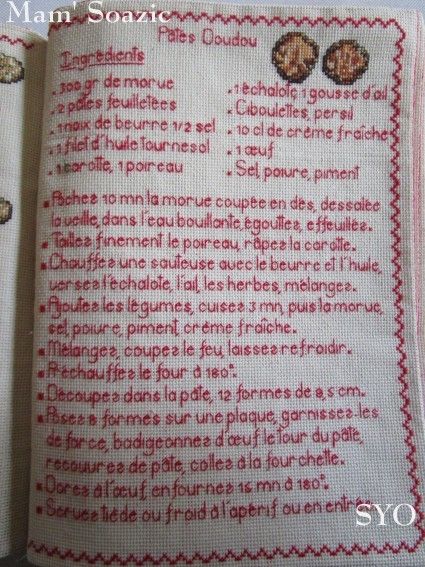 Mam' Soazic
Pâtés Doudou
Ingrédients
. 300 gr de morue
. 2 pâtes feuilletées
. 1 noix de beurre 1/2 sel
. 1 filet d'huile tournesol
. 1 carotte, 1 poireau
. 1 échalote, 1 gousse d'ail
. Ciboulettes, persil
. 10 cl de crème fraîche
. 1 œuf
. Sel, poivre, piment
Pochez 10 mn la morue coupée en dés, dessalée
la veille, dans l'eau bouillante, égouttez, effeuillez.
Taillez finement le poireau, râpez la carotte.
Chauffez une sauteuse avec le beurre et l'huile,
versez l'échalote, l'ail, les herbes, mélangez.
Ajoutez les légumes, cuisez 3 mn, puis la morue,
sel, poivre, piment, crème fraîche.
Mélangez, coupez le feu, laissez refroidir.
Préchauffez le four à 180°.
Découpez dans la pâte, 12 formes de 8,5 cm.
Posez 6 formes sur une plaque, garnissez-les
de farce, badigeonnez d'œuf le tour du pâté,
recouvrez de pâte, collez à la fourchette.
Dorez à l'œuf, enfournez 15 mn à 180°.
Servez tiède ou froid à l'apérif ou en entrée.
SYO